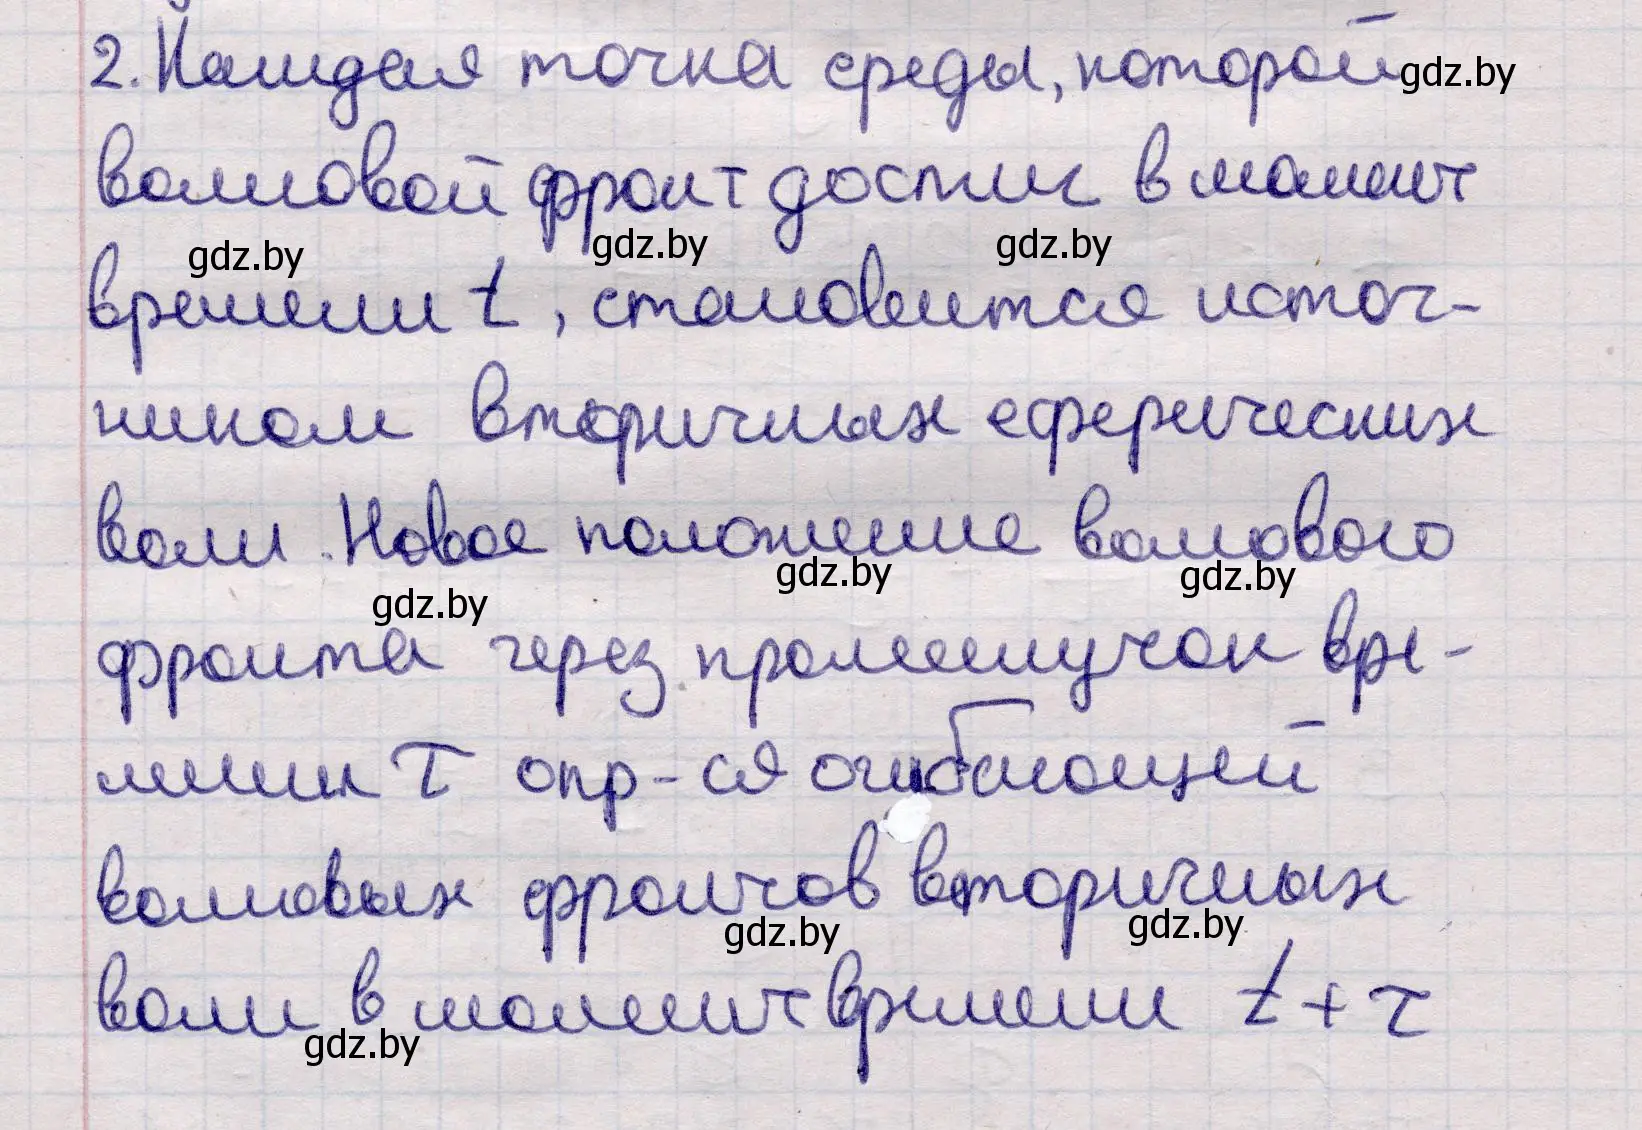 2. Каждая точка среды, которой
gdz.by
волновой фронт достиг в момент
gdz.by gdz.by gdz.by
времени t, становится источ-
ником вторичных сферических
волн. Новое положение волнового
gdz.by gdz.by gdz.by
фронта через промежуток вре-
мени τ опр-ся огибающей
волновых фронтов вторичных
gdz.by gdz.by
волн в момент времени t + τ
gdz.by